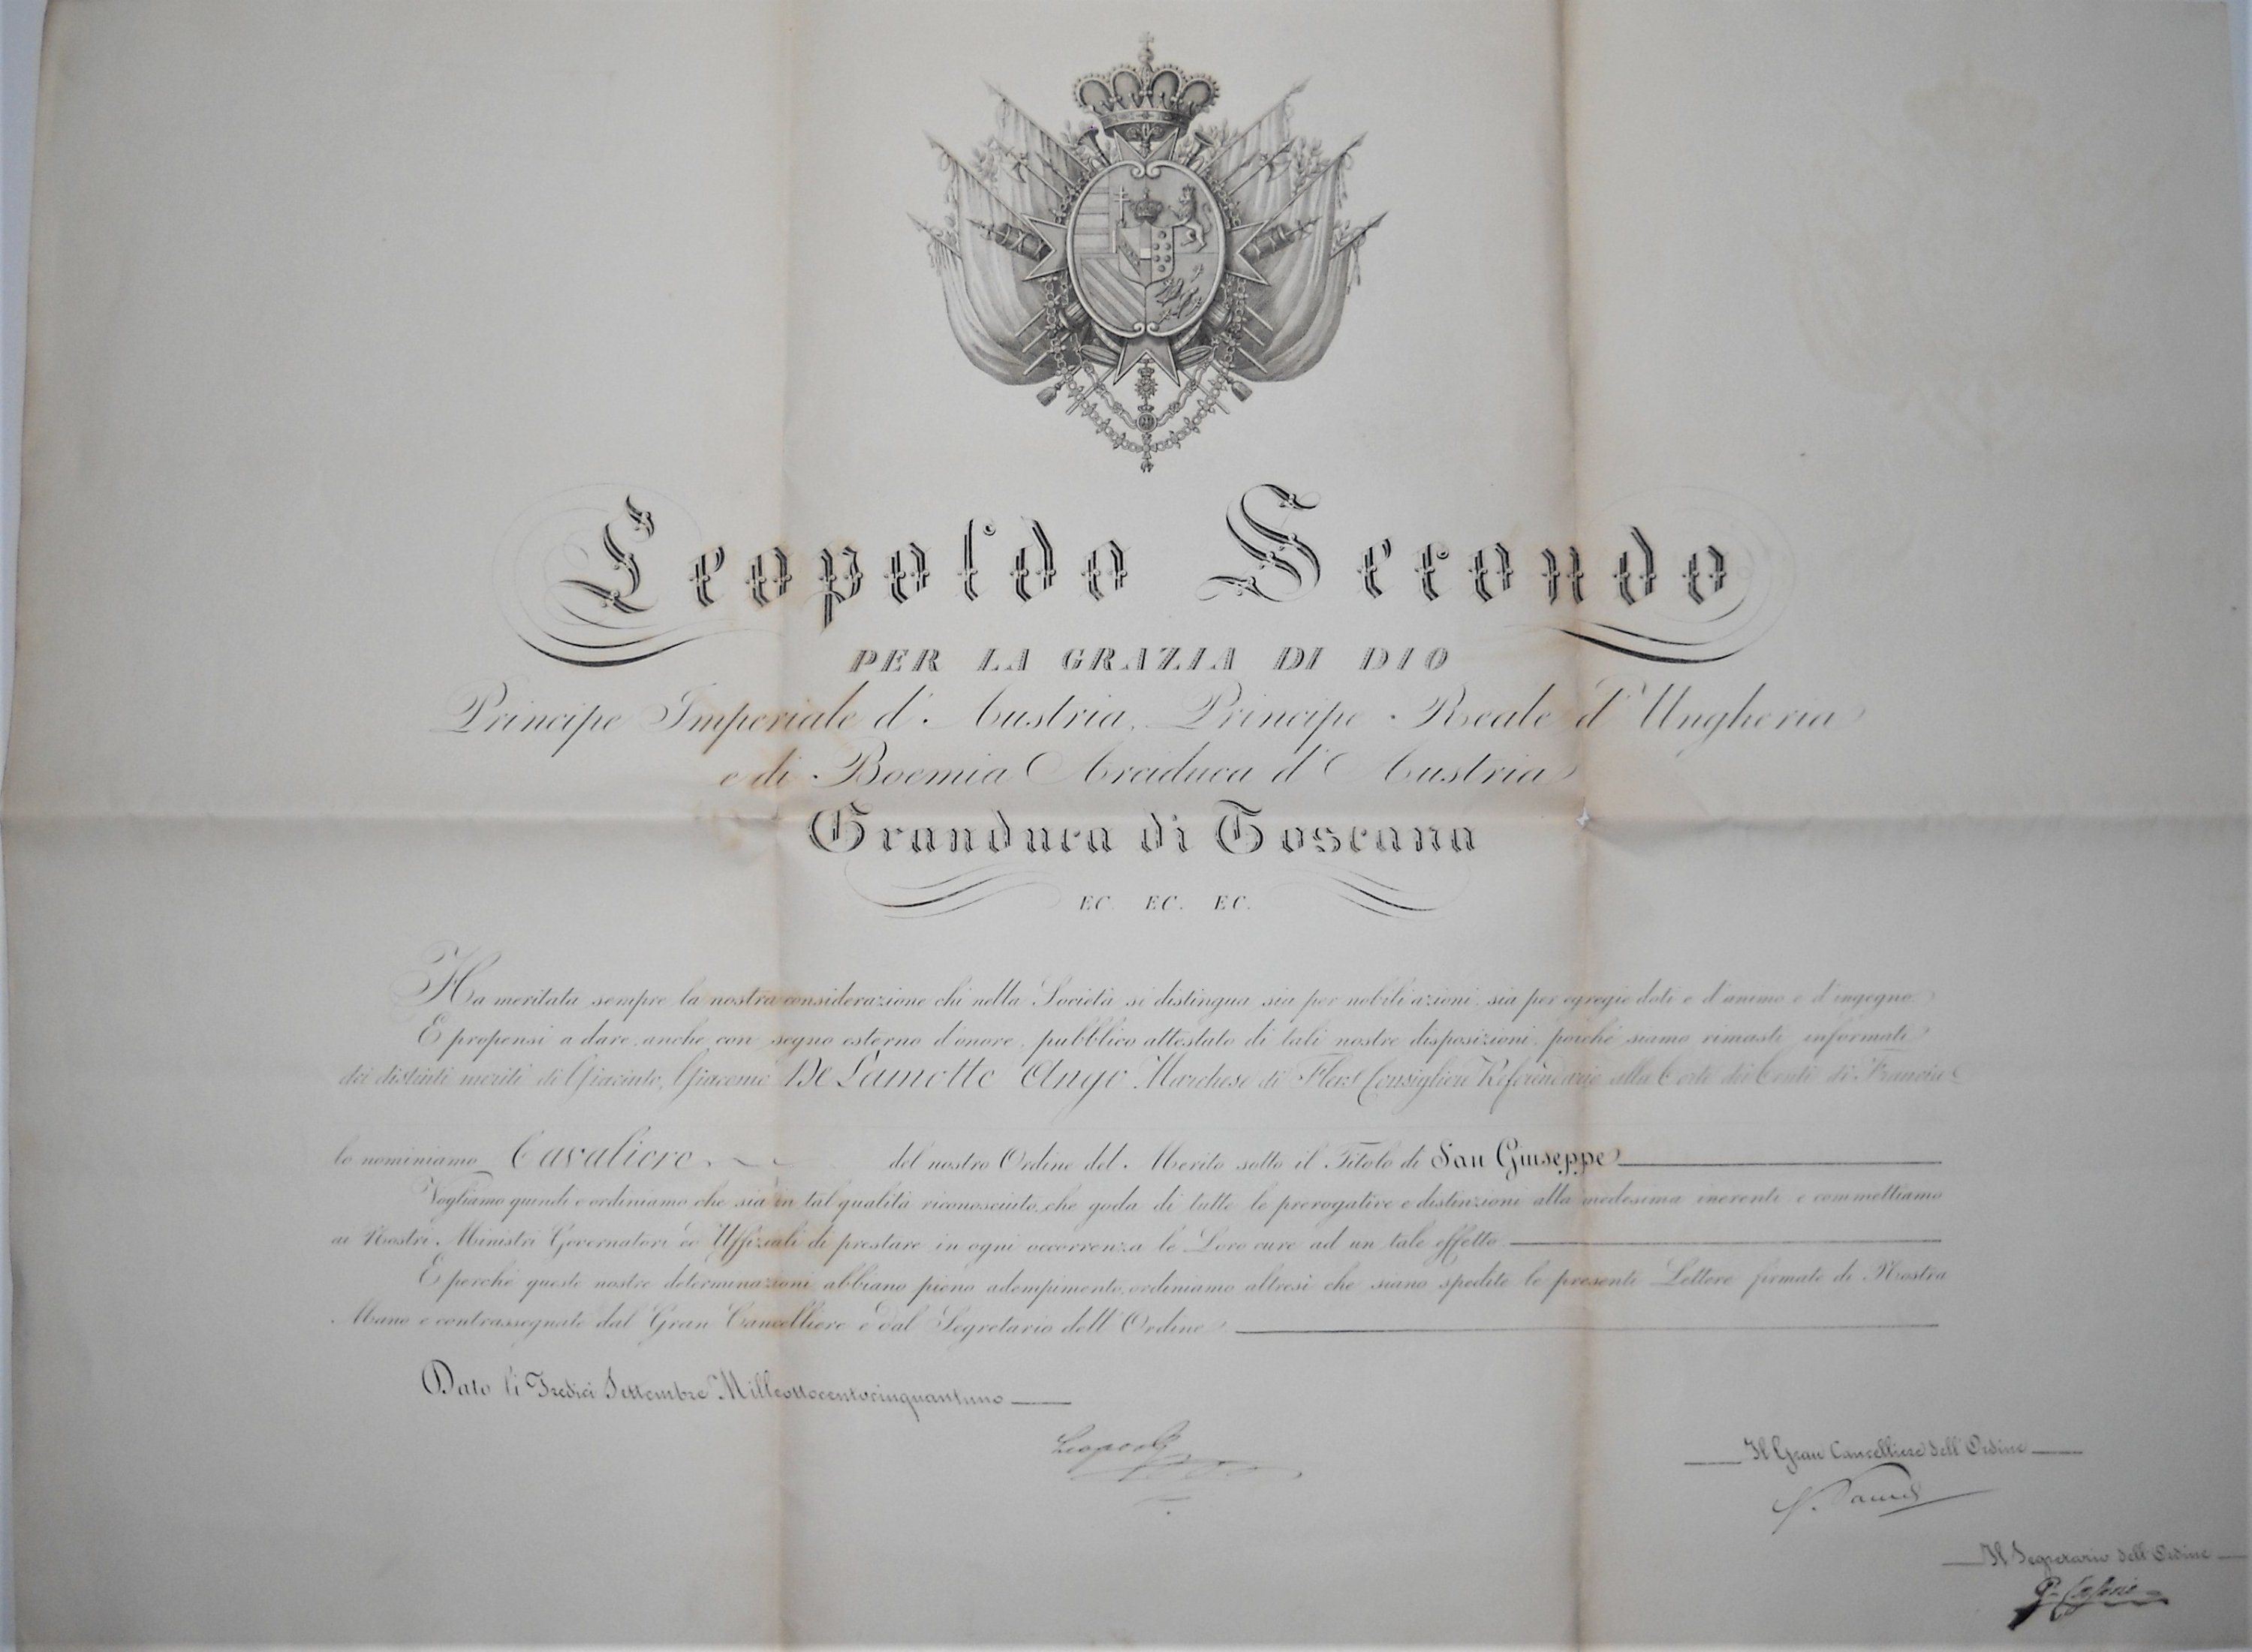 Leopoldo Secondo
PER LA GRAZIA DI DIO
Principe Imperiale d'Austria, Principe Reale d'Ungheria
e di Boemia Arciduca d'Austria
Granduca di Toscana
EC. EC. EC.
Ha meritata sempre la nostra considerazione chi nella Società si distingua sia per nobili azioni, sia per egregie doti e d'animo e d'ingegno.
E propensi a dare anche con segno esterno d'onore, pubblico attestato di tali nostre disposizioni, poichè siamo rimasti informati
dei distinti meriti di Giacinto, Giacomo De Lamotte Ango Marchese di Flers Consigliere Referendario alla Corte dei Conti di Francia
lo nominiamo Cavaliere del nostro Ordine del Merito sotto il Titolo di San Giuseppe
Vogliamo quindi e ordiniamo che sia in tal qualità riconosciuto, che goda di tutte le prerogative e distinzioni alla medesima inerenti e commettiamo
ai Nostri Ministri Governatori ed Uffiziali di prestare in ogni occorrenza le Loro cure ad un tale effetto
E perchè queste nostre determinazioni abbiano pieno adempimento, ordiniamo altresì che siano spedite le presenti Lettere firmate di Nostra
Mano e contrassegnate dal Gran Cancelliere e dal Segretario dell'Ordine
Dato li Tredici Settembre Milleottocentocinquantuno
Leopoldo
Il Gran Cancelliere dell'Ordine
Il Segretario dell'Ordine